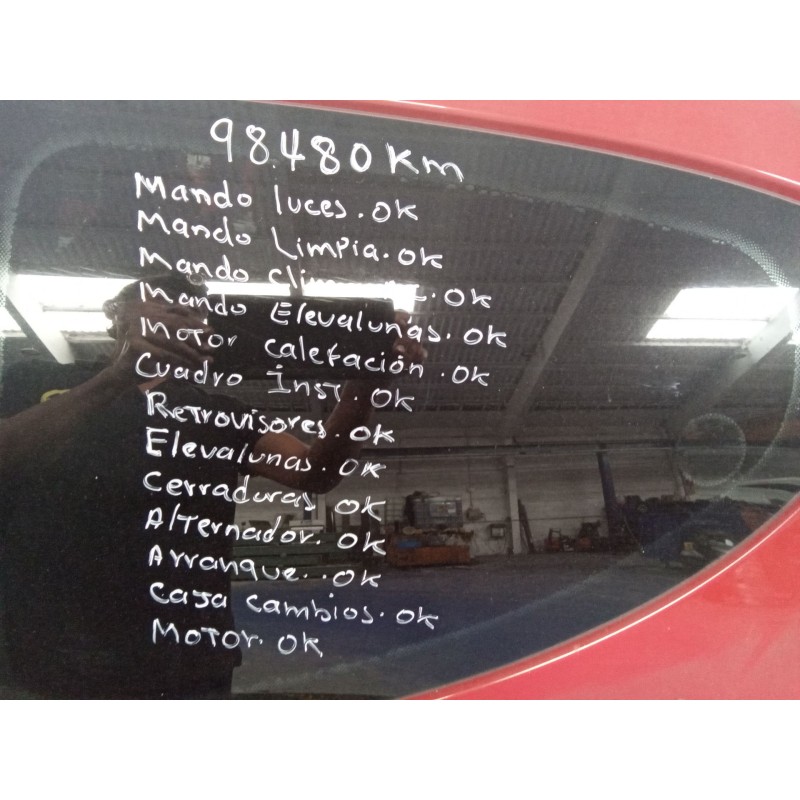 98.480 Km
Mando luces. OK
Mando Limpia. OK
Mando . OK
Mando Elevalunas. OK
Motor calefación. OK
Cuadro Inst. OK
Retrovisores. OK
Elevalunas. OK
Cerraduras OK
Alternador. OK
Arranque. . OK
Caja cambios. OK
Motor. OK